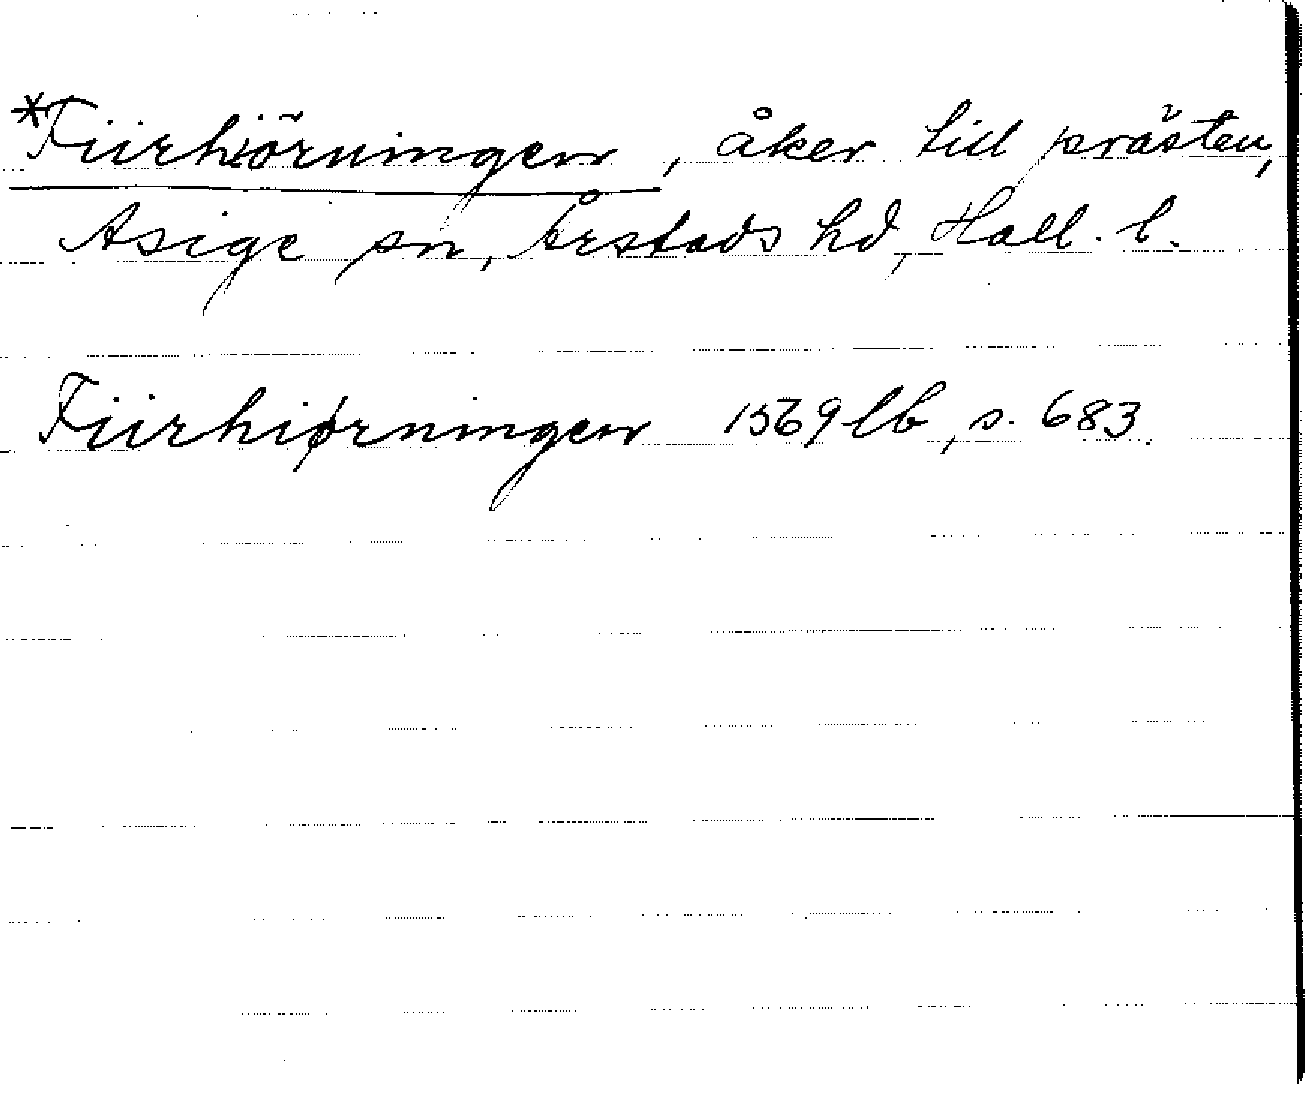 *Fiirhiörningen, åker till prästen,
Asige sn, Årstads hd, Hall. l.
Fiirhiørningen 1569 lb, s. 683.